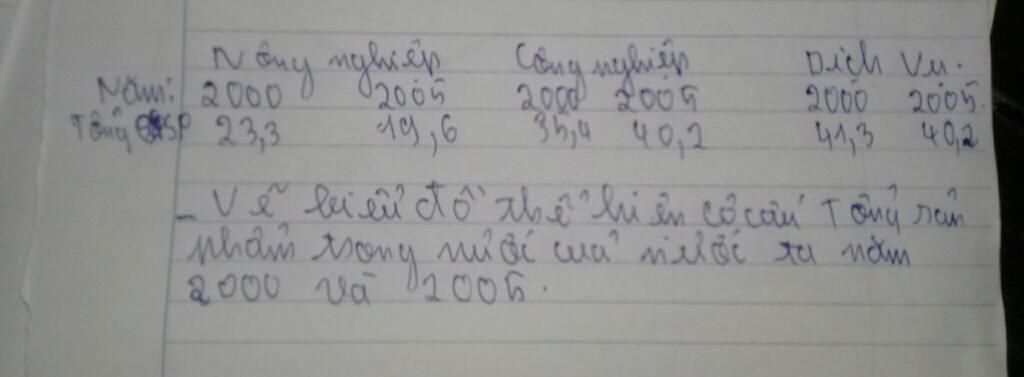 Nông nghiệp Công nghiệp Dịch Vụ.
Năm: 2000 2005 2000 2005 2000 2005.
Tổng SP 23,3 19,6 35,4 40,2 41,3 40,2
- Vẽ biểu đồ thể hiện cơ cấu Tổng sản
phẩm trong nước của nước ta năm
2000 và 2005.